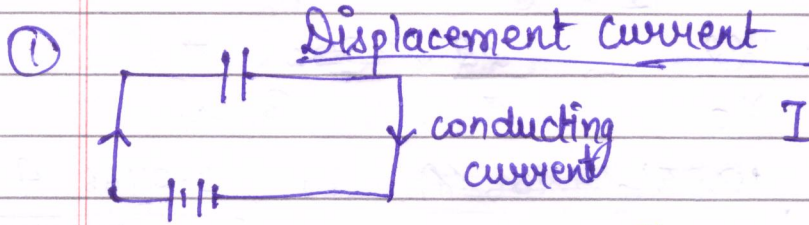 ① Displacement current
conducting I
current